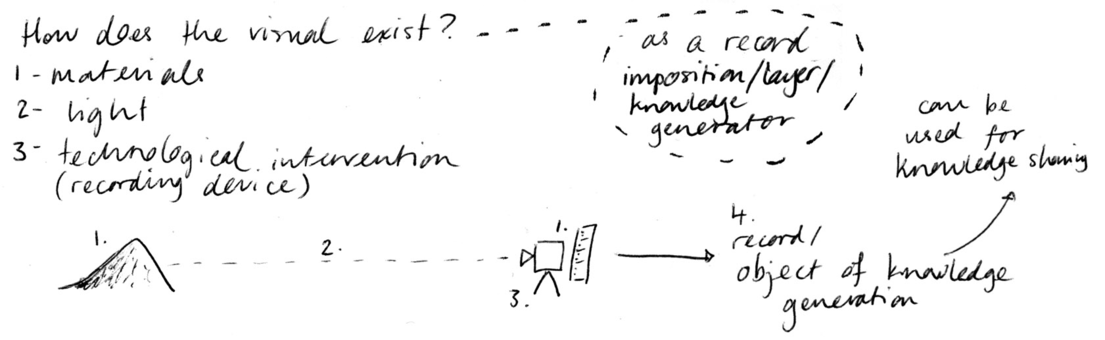 How does the visual exist?
1 - materials
2 - light
3 - technological intervention
(recording device)
as a record
imposition/layer/
knowledge
generator
can be
used for
knowledge sharing
1.
2.
1.
3.
4.
record/
object of knowledge
generation